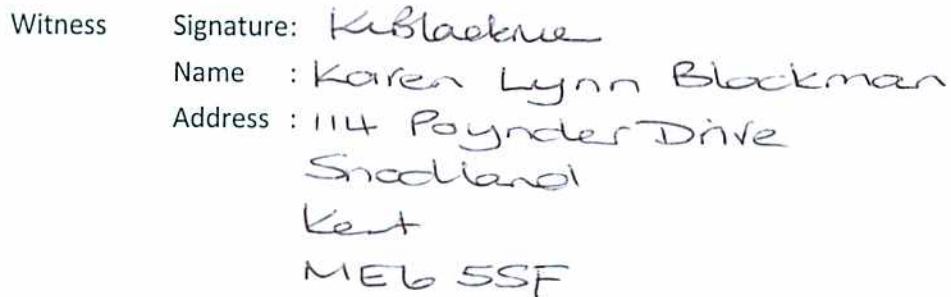 Witness Signature: KLBlackman
Name : Karen Lynn Blackman
Address : 114 Poynder Drive
Snodland
Kent
ME6 5SF